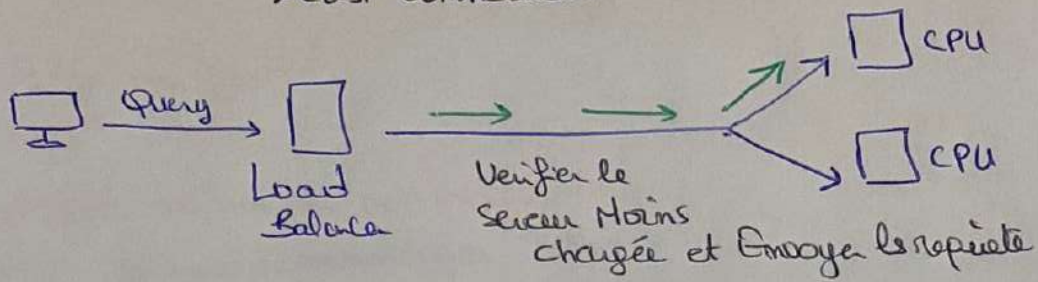 CPU
Query
Load
Balancer
CPU
Verifier le
Serveur Moins
chargée et Envoyer la requête